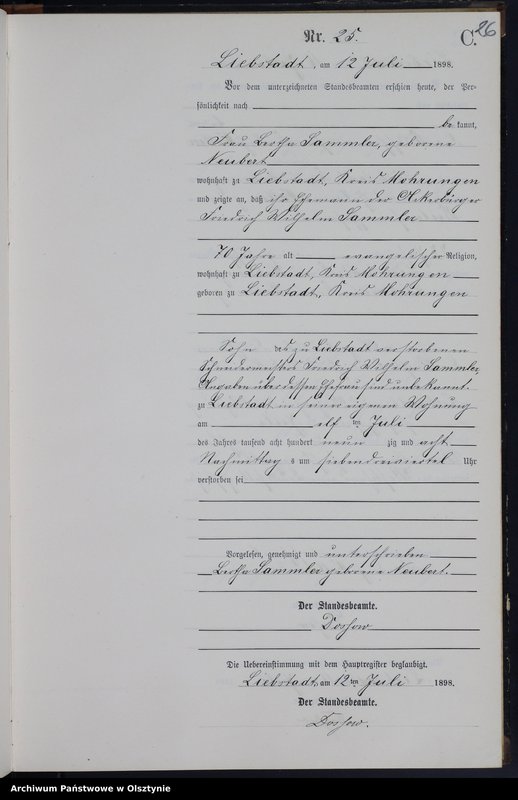 26
Nr. 25. C.
Liebstadt, am 12 Juli 1898.
Vor dem unterzeichneten Standesbeamten erschien heute, der Per-
sönlichkeit nach
be kannt,
Frau Bertha Sammler, geborene
Neubert
wohnhaft zu Liebstadt, Kreis Mohrungen
und zeigte an, daß ihr Ehemann der Ackerbürger
Friedrich Wilhelm Sammler
70 Jahre alt evangelischer Religion,
wohnhaft zu Liebstadt, Kreis Mohrungen
geboren zu Liebstadt, Kreis Mohrungen
Sohn des zu Liebstadt verstorbenen
Schneidermeisters Friedrich Wilhelm Sammler,
Angaben über dessen Ehefrau sind unbekannt
zu Liebstadt in seiner eignen Wohnung
am elf ten Juli
des Jahres tausend acht hundert neun zig und acht
Nachmittag s um siebendreiviertel Uhr
verstorben sei
Vorgelesen, genehmigt und unterschrieben
Bertha Sammler geborene Neubert.
Der Standesbeamte.
Dossow
Die Uebereinstimmung mit dem Hauptregister beglaubigt.
Liebstadt, am 12 ten Juli 1898.
Der Standesbeamte.
Dossow.
Archiwum Państwowe w Olsztynie